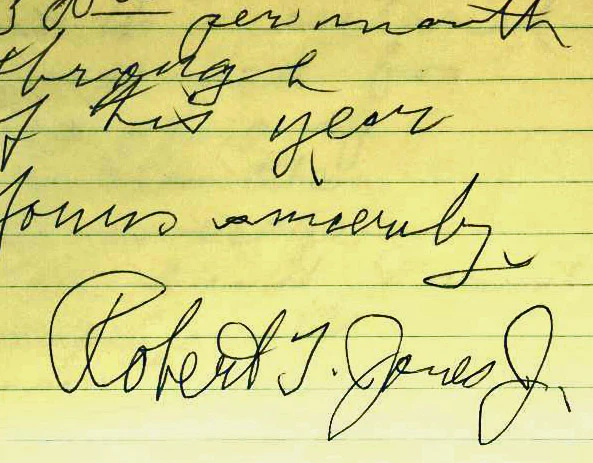 per month
through
of this year
Yours sincerely,
Robert T. Jones Jr.